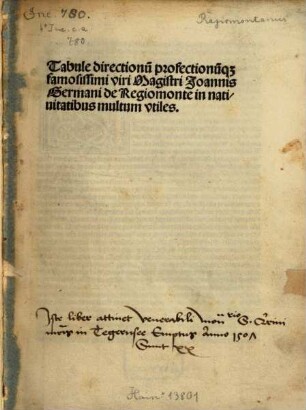 Inc. 780.
Regiomontanus
4° Inc. c. a.
780.
Tabule directionũ profectionũqȝ
famosissimi viri Magistri Joannis
Germani de Regiomonte in nati-
uitatibus multum vtiles.
Iste liber attinet venerabili mon rio S. Quirini
in Tegernsee Emptus Anno 150
Hain 13801